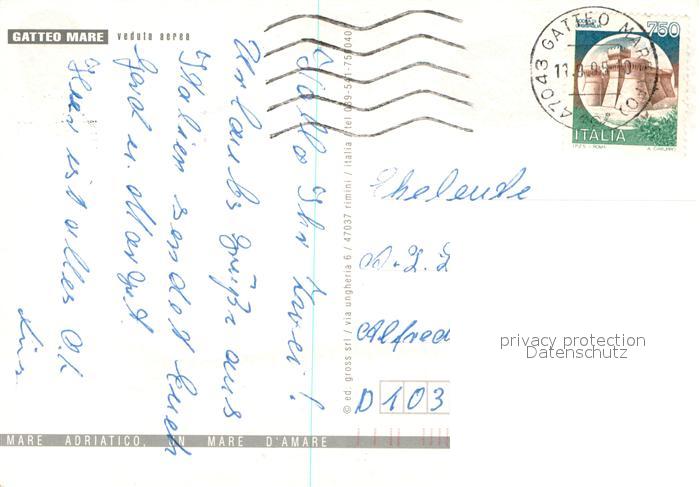 GATTEO MARE veduta aerea
Hallo Ihr zwei!
Urlaubs grüße aus
Italien sendet Euch
Gerd u. Margit.
Hier ist alles O.K
© ed. gross srl / via ungheria 6 / 47037 rimini / italia / tel 059-541-750040
MARE ADRIATICO, UN MARE D'AMARE
47043 GATTEO MARE (FO)
750
ITALIA
I.P.Z.S. - ROMA
Eheleute
Alfred
D 103
privacy protection
Datenschutz